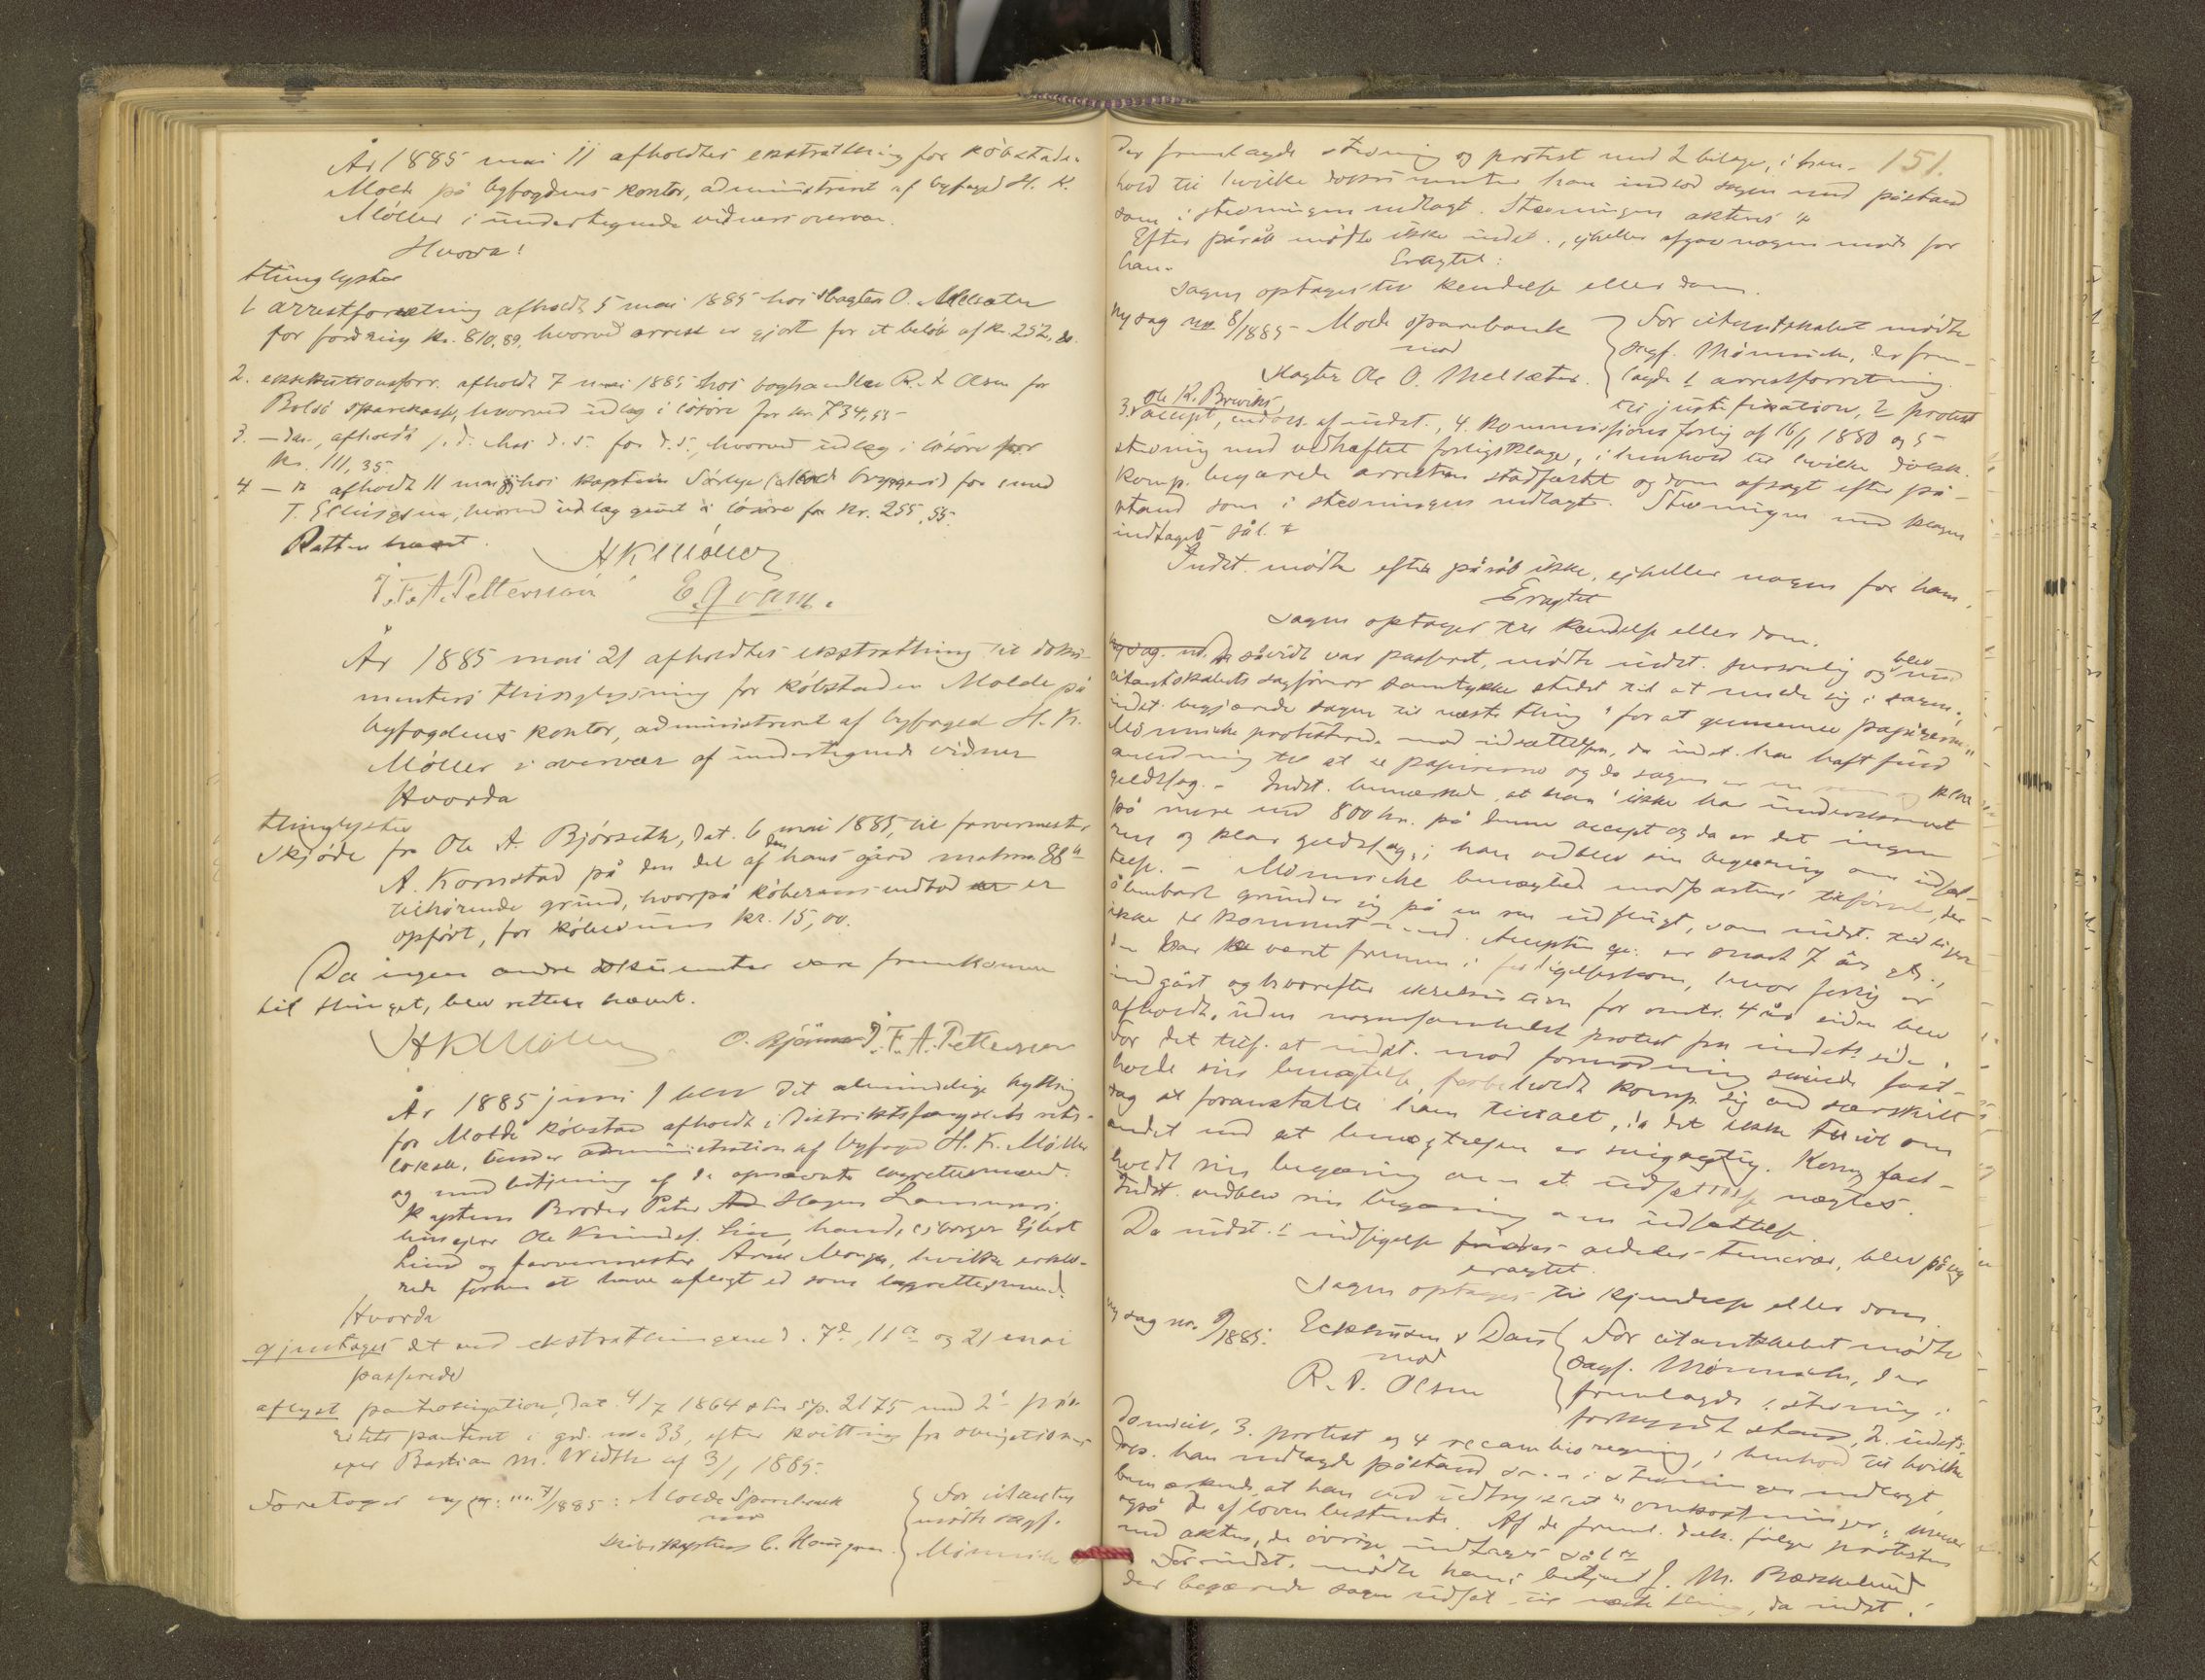 År 1885 mai 11 afholdtes exstrathing for købstaden
Molde på byfogdens kontor, administreret af byfoged H. K.
Møller i undertegnede vidners overvær.
Hvorda!
thinglystes
1 arrestforretning afholdt 5 mai 1885 hos slagter O. Melsæter
for fordring kr. 810,89, hvorved arrest er gjort for et beløb af kr. 252,
2. exekutionsforr. afholdt 7 mai 1885 hos boghandler R. Olsen for
Bolsø sparekasse, hvorved udlæg i løsøre for kr. 734,53
3. — do., afholdt s. d. hos d. s. for d. s., hvorved udlæg i løsøre for
kr. 111,35.
4 — afholdt 11 mai hos kaptein Sørlye (Molde bryggeri) for smed
T. Ellingsen, hvorved udlæg givet i løsøre for kr. 255,55.
Retten hævet.
HKMöller
J. F. A. Petterson E. Gram.
År 1885 mai 21 afholdtes exstrathing til doku-
menters thinglysning for købstaden Molde på
byfogdens kontor, administreret af byfoged H. K.
Møller i overvær af undertegnede vidner
Hvorda
thinglystes
skjøde fra Ole A. Bjørseth, dat. 6 mai 1885, til farvermester
A. Kornstad på den del af den hans gård matr. no 88a
tilhørende grund, hvorpå køberens er
opført, for købesum kr. 15,00.
Da ingen andre dokumenter vare fremkomne
til thinget, blev retten hævet.
HKMöller O. Bjørnes J. F. A. Petterson
År 1885 juni 1 blev det almindelige bything
for Molde købstad afholdt i distriktsfængslets rets-
lokale, under administration af byfoged H. K. Møller
og med betjening af de opnævnte lagrettesmænd:
kaptein Broder Peter Hagen
huseier Ole Knudsen Lien, handelsborger Ejlert
Lind og farvermester Arne Monge, hvilke erklæ-
rede forhen at have aflagt ed som lagrettesmænd.
Hvorda
gjentoges det ved ekstrathingene d. 7de, 11te og 21 mai
passerede
aflyst pantobligation, dat. 4/7 1864 sp. 2175 med 2.
rets panteret i grd. no 33, efter kvittering fra obligations-
eier Bastian M. Width af 3/1 1885.
Foretoges ny sag no. 7/1885: Molde Sparebank
mod
skibskaptein C. Hansgen.
For citanten
mødte sagf.
Mønniche
151.
der fremlagde stevning og protest med 2 bilage, i hen-
hold til hvilke dokumenter han indlod sagen med påstand
som i stevningen nedlagt. Stevningen akteres
Efter påråb mødte ikke indst., ejheller afgav nogen møde for
ham.
Eragtet:
Sagen optages til kendelse eller dom.
Ny sag no 8/1885 — Molde sparebank
mod
slagter Ole O. Melsæter.
For citantskabet mødte
sagf. Mønniche, der frem-
lagde 1 arrestforretning
til justifikation, 2 protest
3. Ole K. Breviks accept, endoss. af indst., 4. kommissionsforlig af 16/1 1880 og 5
stevning med vedhæftet forligsklage, i henhold til hvilke dokk.
komp. begærede arresten stadfæstet og dom afsagt efter på-
stand som i stevningen nedlagt. Stevningen med klagen
indtages sål.
Indst. mødte efter påråb ikke, ejheller nogen for ham.
Eragtet
Sagen optages til kendelse eller dom.
Da såvidt var passeret, mødte indst. personlig og blev med
citantskabets sagførers samtykke stedet tid at melde sig i sagen;
indst. begjærede sagen til næste thing "for at gennemse papirerne"
Mønniche protesterede mod udsættelsen, da indst. har haft fuld
anledning til at se papirerne og da sagen er en ren og klar
gjeldssag. — Indst. bemærkede, at han ikke har underskrevet
på mere end 800 kr. på denne accept og da er det ingen
ren og klar gjeldssag; han vedblev sin begæring om udsæt-
telse. — Mønniche benægted modpartens tilførsel, der
åbenbart grunder sig på en ren udflugt, som indst. tidligere
ikke er kommet med. Accepten er snart 7 år gl.,
den har været fremme i forligelseskom., hvor forlig er
indgået og hvorefter exekution for omtr. 4 år siden blev
afholdt, uden nogensomhelst protest fra indst. side.
For det tilf. at indst. mod formodning skulde fast-
holde sin benægtelse, forbeholdt komp. sig ved særskilt
sag at foranstalte ham tiltalt, da det ikke er tvivl om
andet end at benægtelsen er svigagtig. Komp. fast-
holdt sin begæring om at udsættelse nægtes.
Indst. vedblev sin begæring om udsættelse
Da indst.s indsigelse findes aldeles temerær, blev påny
eragtet.
Sagen optages til kjendelse eller dom.
Ny sag no. 9/1885. Eckhusen & Dau
mod
R. Olsen
For citantskabet mødte
sagf. Mønniche, der
fremlagde 1 stevning i
forkyndt stand, 2. indst.s
domicil, 3. protest og 4 recambioregning, i henhold til hvilke
dok. han nedlagde påstand som i stevningen nedlagt,
bemærkende, at han ved udtrykket "omkostninger" mener
også de af loven bestemte. Af de freml. dok. følger protesten
med akten, de øvrige indtages sål.
For indst. mødte hans betjent J. M. Barkelund
der begærede sagen udsat til næste thing, da indst.